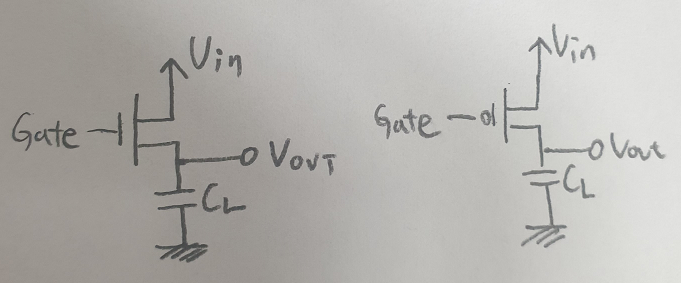 Vin
Gate
VOUT
CL
Vin
Gate
Vout
CL